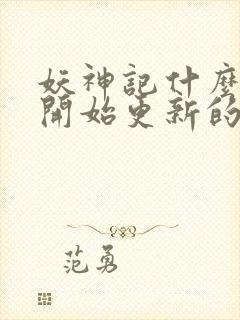 妖神記什麼
開始更新的
范勇